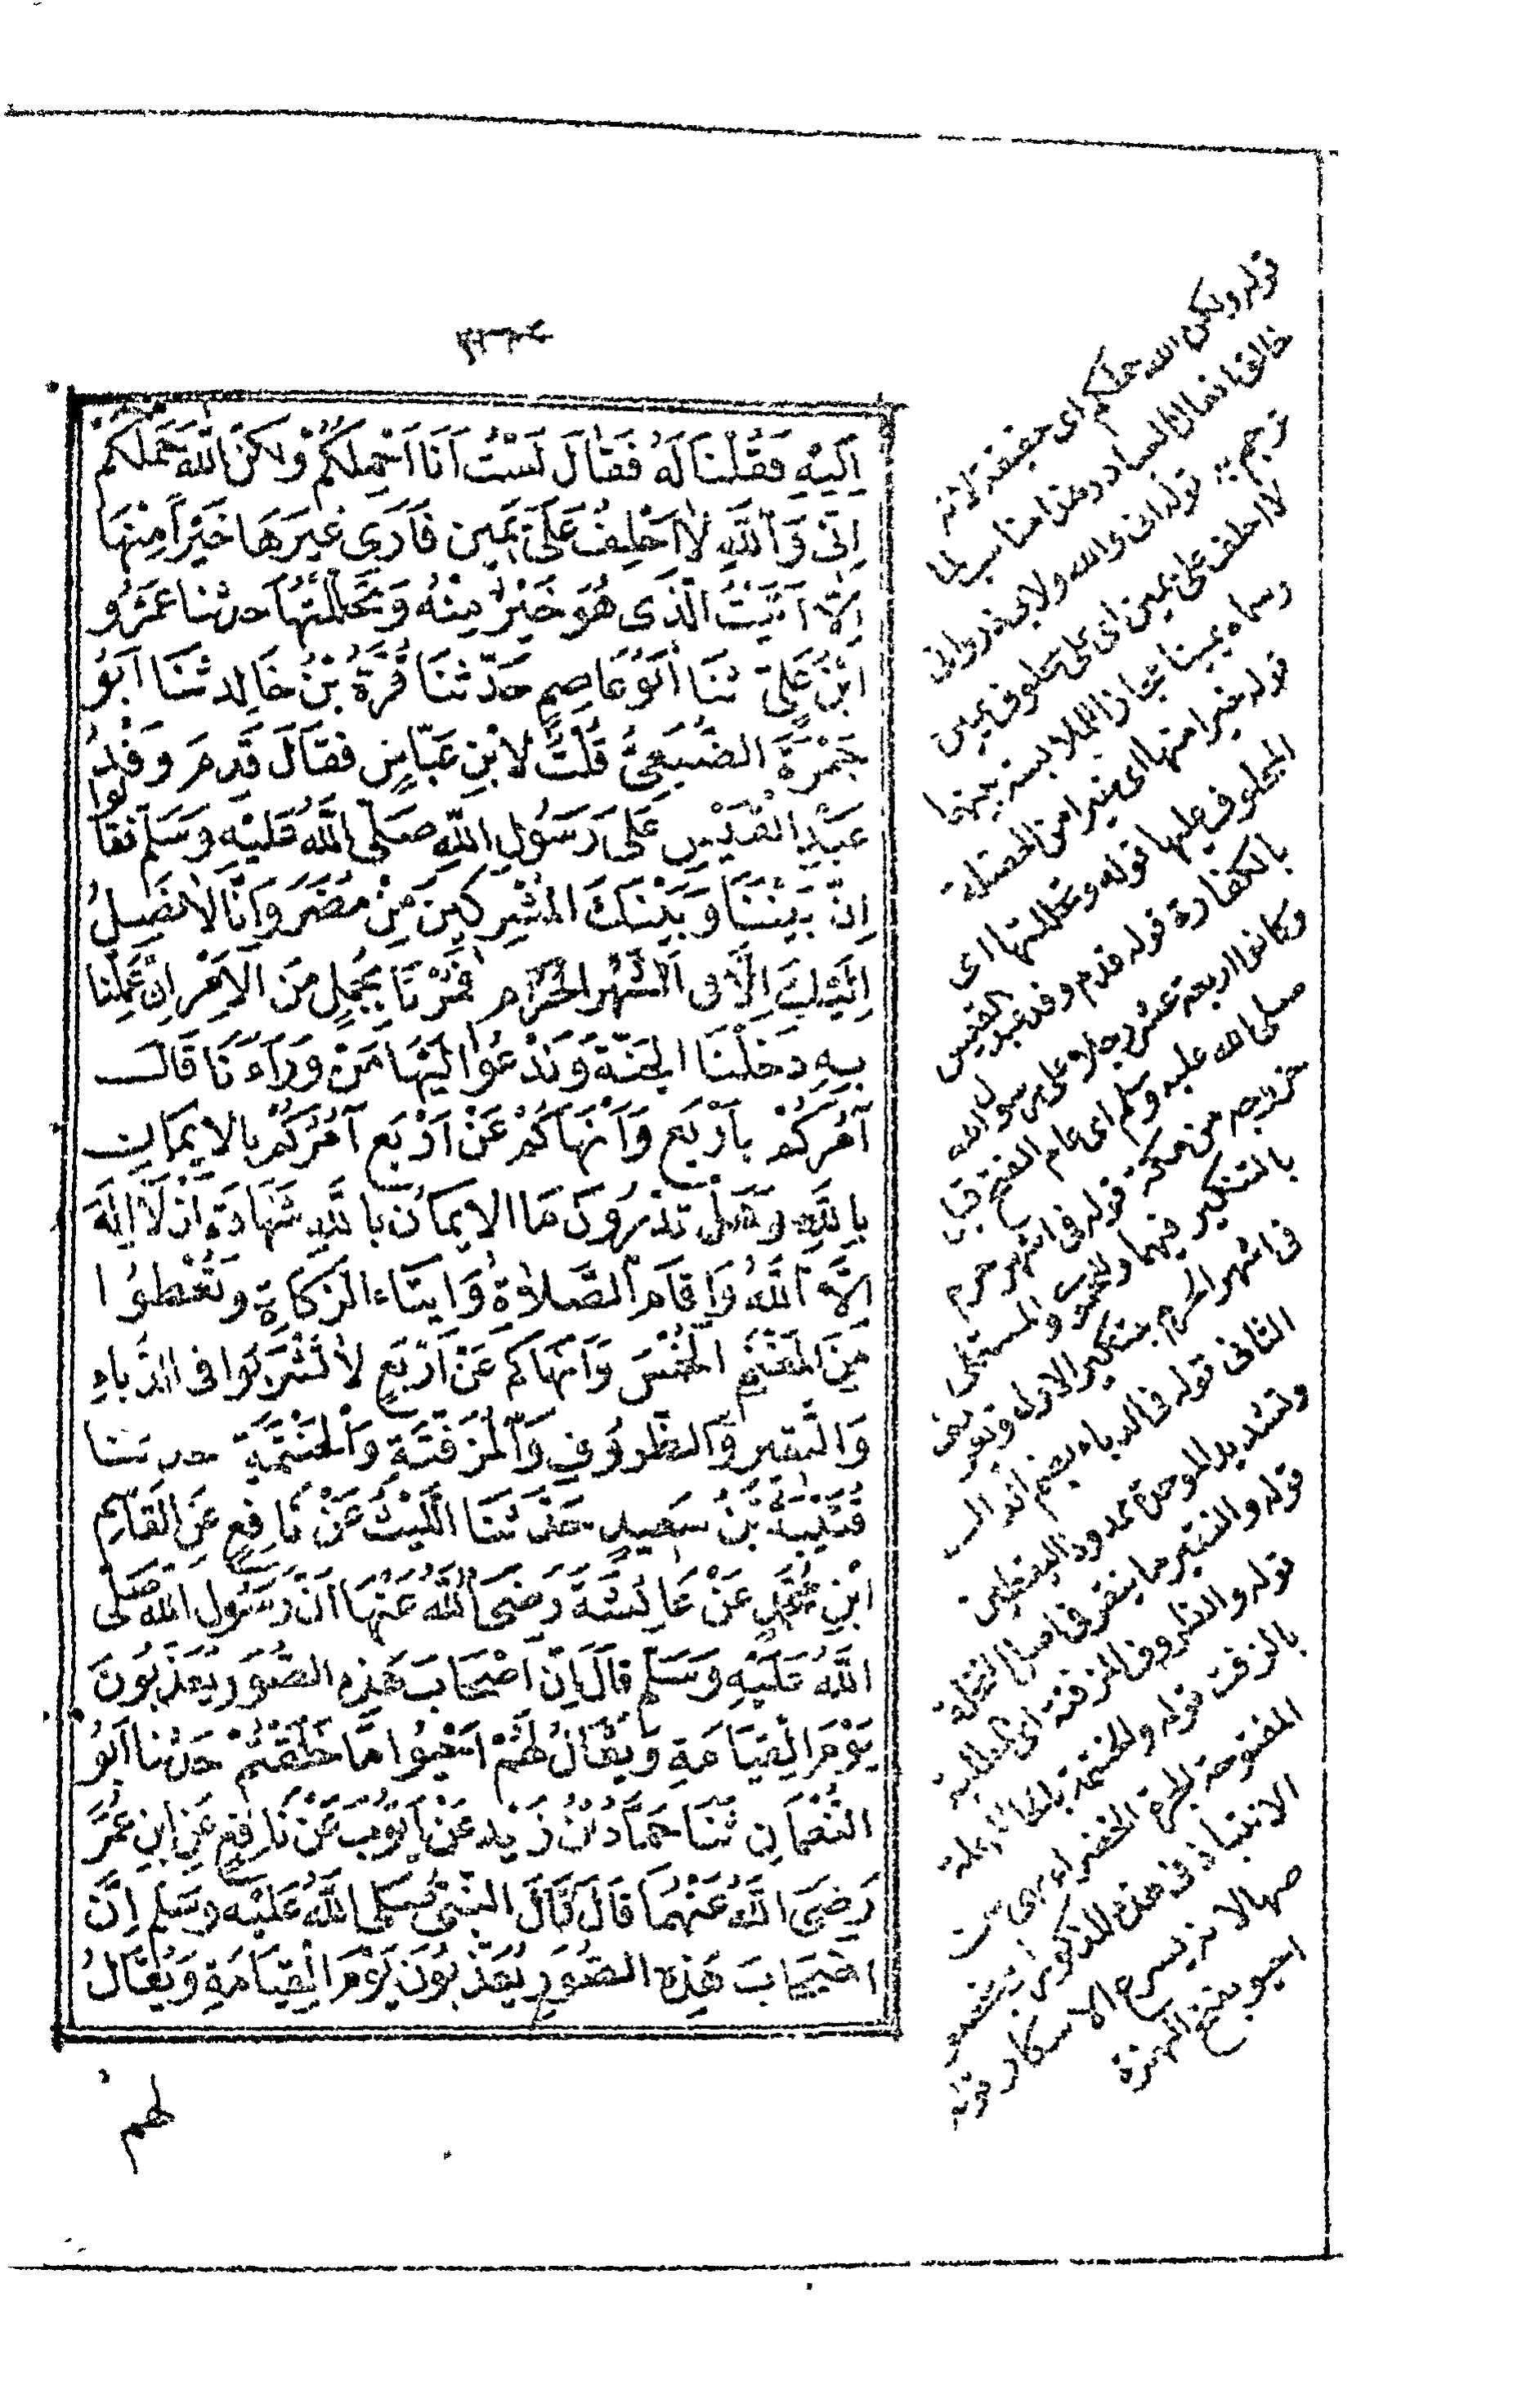 اِلَيْهِ فَقُلْنَا لَهُ فَقَالَ لَسْتُ اَنَا اَحْمِلُكُمْ وَلٰكِنَّ اللّٰهَ حَمَلَكُمْ
اِنِّى وَاللّٰهِ لَا اَحْلِفُ عَلَى يَمِين فَاَرَى غَيْرَهَا خَيْراً مِنْهَا
اِلَّا اَتَيْتُ الَّذِى هُوَ خَيْرٌ مِنْهُ وَتَحَلَّلْتُهَا حدثنا عَمْرُو
ابْنُ عَلِىّ ثَنَا اَبُو عَاصِمٍ حَدَّثَنَا قُرَّةُ بْنُ خَالِد ثَنَا اَبُو
جَمْرَةَ الضُّبَعِىُّ قُلْتُ لِابْنِ عَبَّاسٍ فَقَالَ قَدِمَ وَفْدُ
عَبْدِ الْقَيْسِ عَلَى رَسُولِ اللّٰهِ صَلَّى اللّٰهُ عَلَيْهِ وَسَلَّمَ فَقَالُوا
اِنَّ بَيْنَنَا وَبَيْنَكَ الْمُشْرِكِينَ مِنْ مُضَرَ وَاَنَّا لَا نَصِلُ
اِلَيْكَ اِلَّا فى اَشْهُرِ الْحُرُمِ فَمُرْنَا بِجُمَلٍ مِنَ الْاَمْرِ اِنْ عَمِلْنَا
بِهِ دَخَلْنَا الْجَنَّةَ وَنَدْعُوا اِلَيْهَا مَنْ وَرَاءَنَا قَالَ
آمُرُكُمْ بِاَرْبَعٍ وَاَنْهَاكُمْ عَنْ اَرْبَعٍ آمُرُكُمْ بِالْاِيمَانِ
بِاللّٰهِ وَهَلْ تَدْرُونَ مَا الْاِيمَانُ بِاللّٰهِ شَهَادَةُ اَنْ لَا اِلٰهَ
اِلَّا اللّٰهُ وَاِقَامُ الصَّلَاةِ وَاِيتَاءُ الزَّكَاةِ وَتُعْطُوا
مِنَ الْمَغْنَمِ الْخُمُسَ وَاَنْهَاكُمْ عَنْ اَرْبَعٍ لَا تَشْرَبُوا فى الدُّبَّاءِ
وَالنَّقِيرِ وَالظُّرُوفِ وَالْمُزَفَّتَةِ وَالْحَنْتَمَةِ حدثنا
قُتَيْبَةُ بْنُ سَعِيدٍ حَدَّثَنَا اللَّيْثُ عَنْ نَافِعٍ عَنِ الْقَاسِمِ
ابْنِ مُحَمَّدٍ عَنْ عَائِشَةَ رَضِىَ اللّٰهُ عَنْهَا اَنَّ رَسُولَ اللّٰهِ صَلَّى
اللّٰهُ عَلَيْهِ وَسَلَّمَ قَالَ اِنَّ اَصْحَابَ هٰذِهِ الصُّوَرِ يُعَذَّبُونَ
يَوْمَ الْقِيَامَةِ وَيُقَالُ لَهُمْ اَحْيُوا مَا خَلَقْتُمْ حدثنا اَبُو
النُّعْمَانِ ثَنَا حَمَّادُ بْنُ زَيْدٍ عَنْ اَيُّوبَ عَنْ نَافِعٍ عَنِ ابْنِ عُمَرَ
رَضِىَ اللّٰهُ عَنْهُمَا قَالَ قَالَ النَّبِىُّ صَلَّى اللّٰهُ عَلَيْهِ وَسَلَّمَ اِنَّ
اَصْحَابَ هٰذِهِ الصُّوَرِ يُعَذَّبُونَ يَوْمَ الْقِيَامَةِ وَيُقَالُ
لهم
قوله ولكن الله حملكم اى حقيقة لانه
خالق افعال العباد وهذا مناسب لما
ترجم به قوله انى والله
لا احلف على يمين اى على محلوف يمين
وسماه يمينا مجازا للملابسة بينهما
قوله خيرا منها اى خيرا من الخصلة
المحلوف عليها قوله وتحللتها اى
بالكفارة قوله قدم وفد عبد القيس
وكانوا اربعة عشر رجلا على رسول الله
صلى الله عليه وسلم اى عام الفتح قبل
خروجه من مكة قوله فى اشهر حرم
بالتنكير فيهما
فى اشهر الحرم بتنكير الاول وتعريف
الثانى قوله فى الدباء بضم الدال
وتشديد الموحدة ممدود اليقطين
قوله والنقير ما ينقر فى اصل النخلة
قوله والظروف المزفتة اى المطلية
بالزفت قوله والحنتمة بالحاء المهملة
المفتوحة الجرة الخضراء
الانتباذ فى هذه المذكورات بخصو
صها لانه يسرع الاسكار قوله
احيو بفتح الهمزة